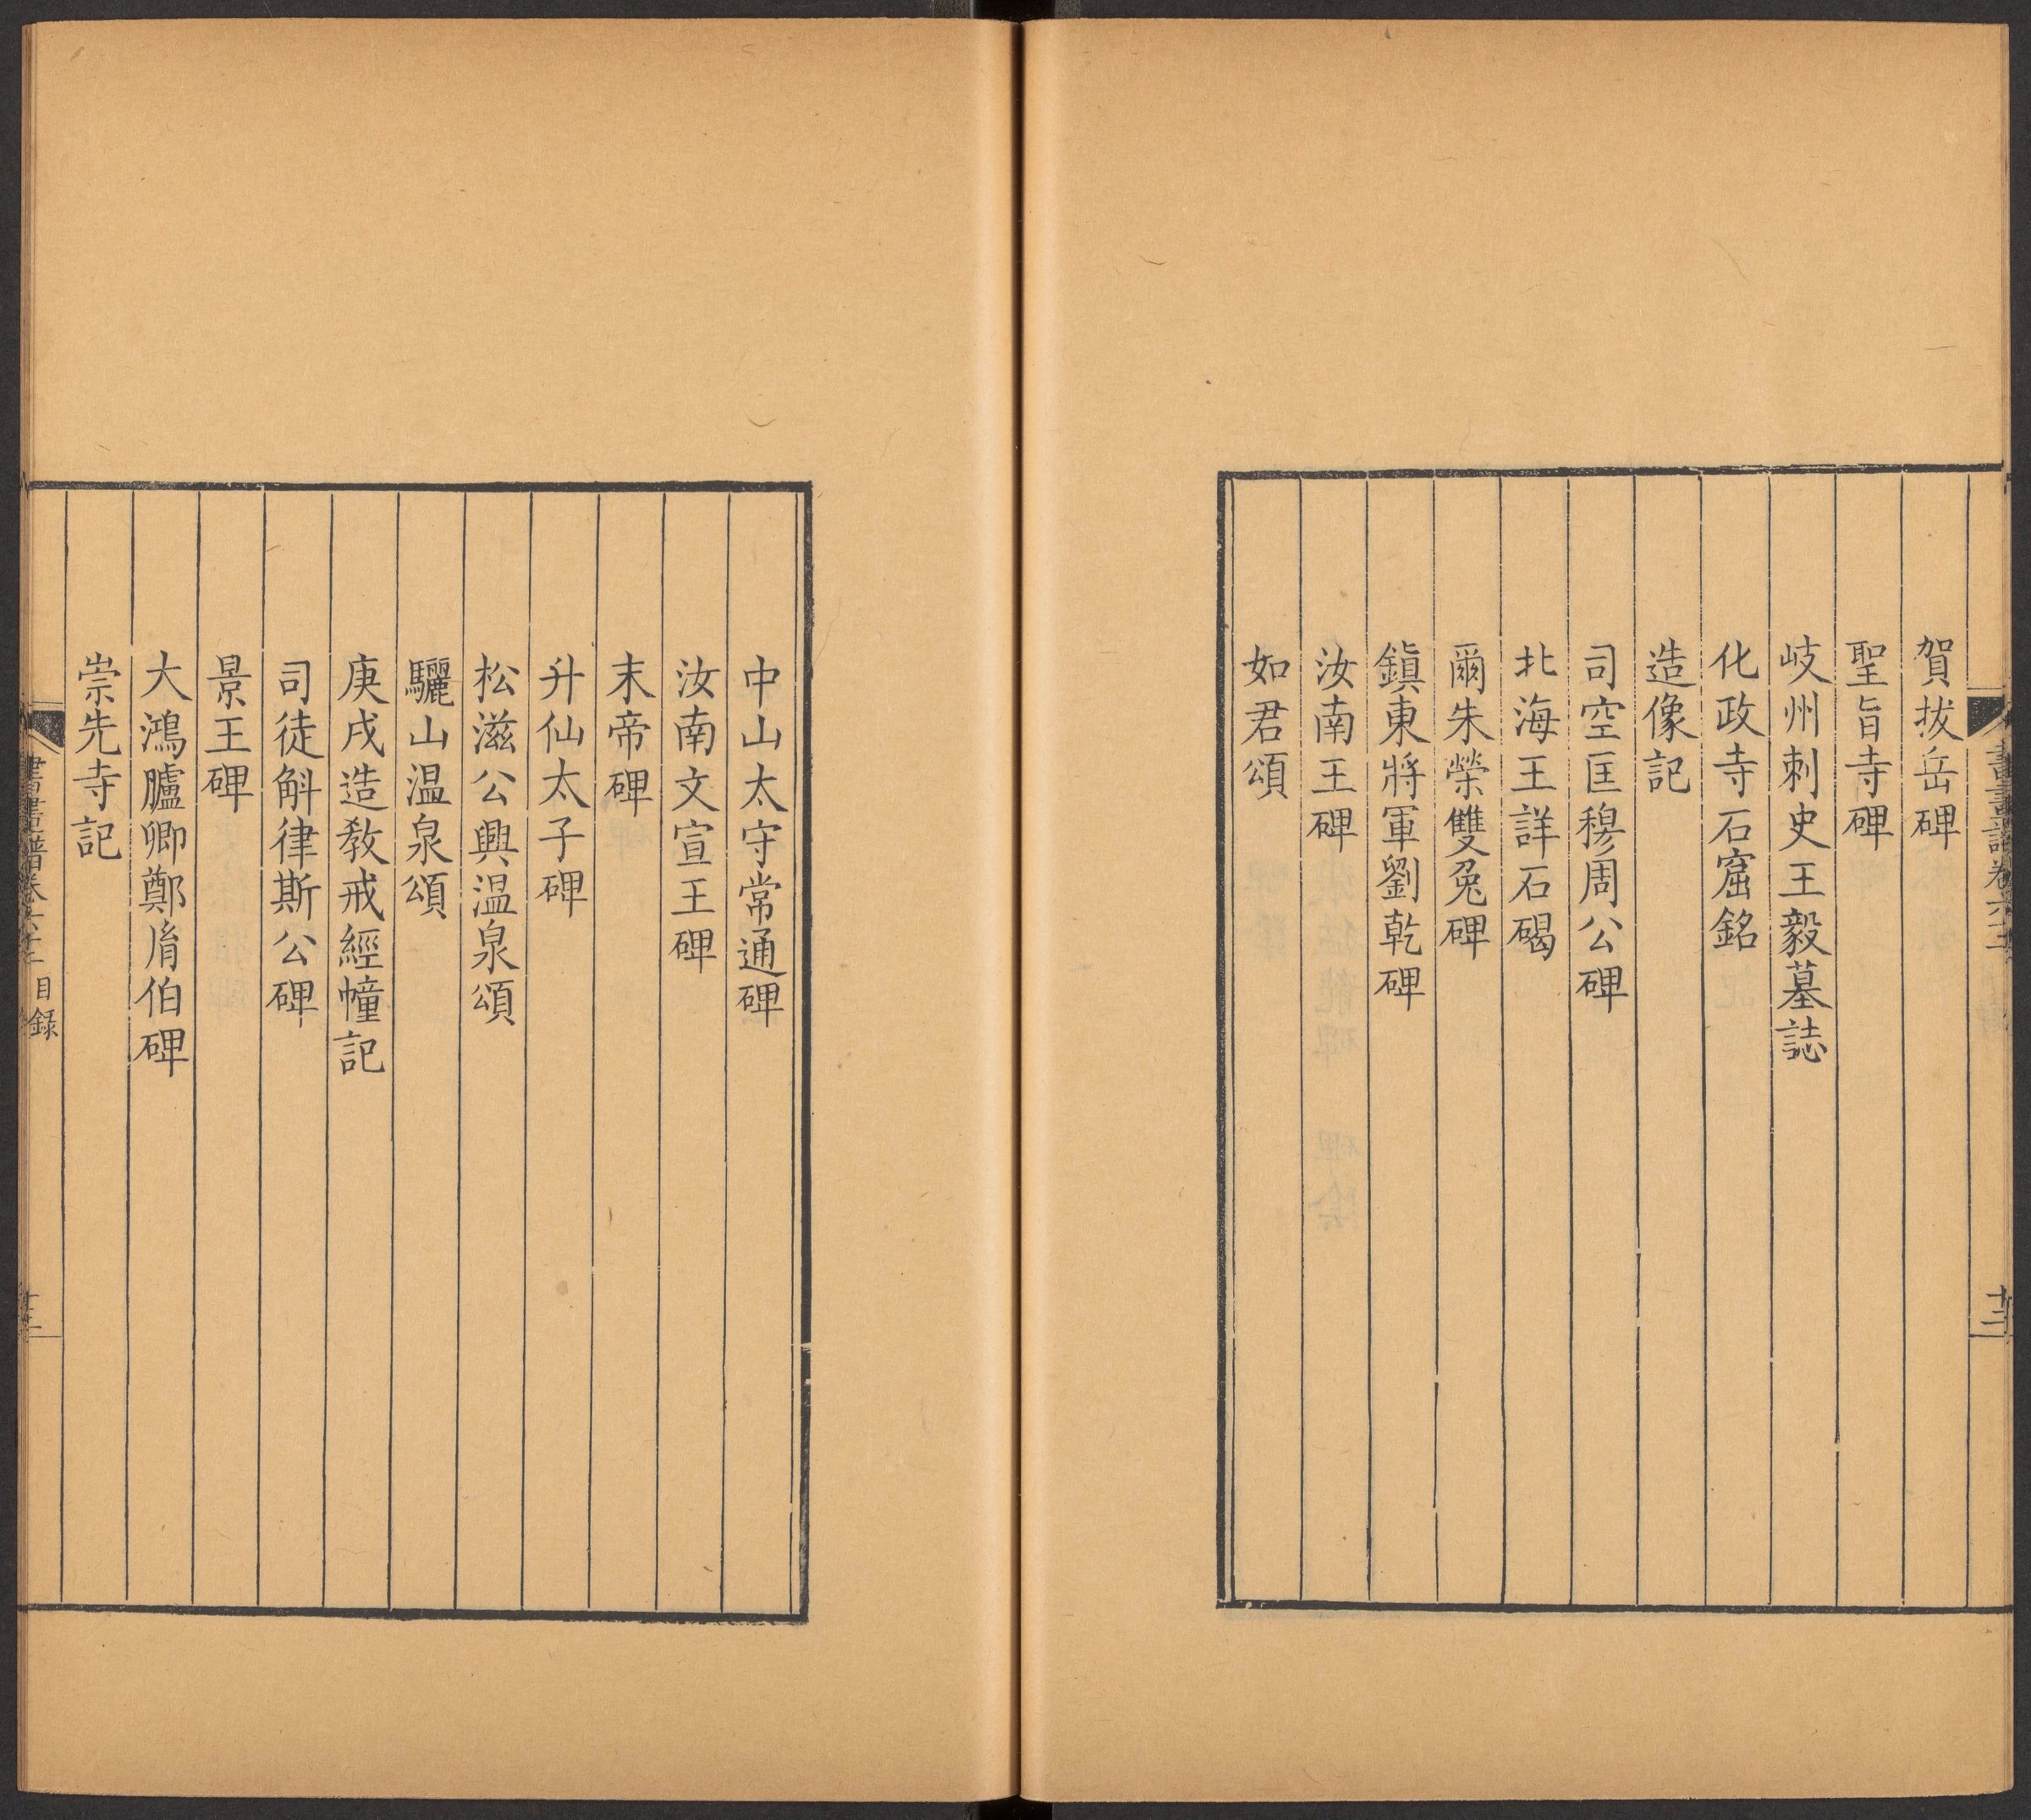 賀拔岳碑
聖旨寺碑
岐州刺史王毅墓誌
化政寺石窟銘
造像記
司空匡穆周公碑
北海王詳石碣
爾朱榮雙兔碑
鎮東將軍劉乾碑
汝南王碑
如君頌
中山太守常通碑
汝南文宣王碑
末帝碑
升仙太子碑
松滋公興温泉頌
驪山温泉頌
庚戌造教戒經幢記
司徒斛律斯公碑
景王碑
大鴻臚卿鄭胤伯碑
崇先寺記
目錄